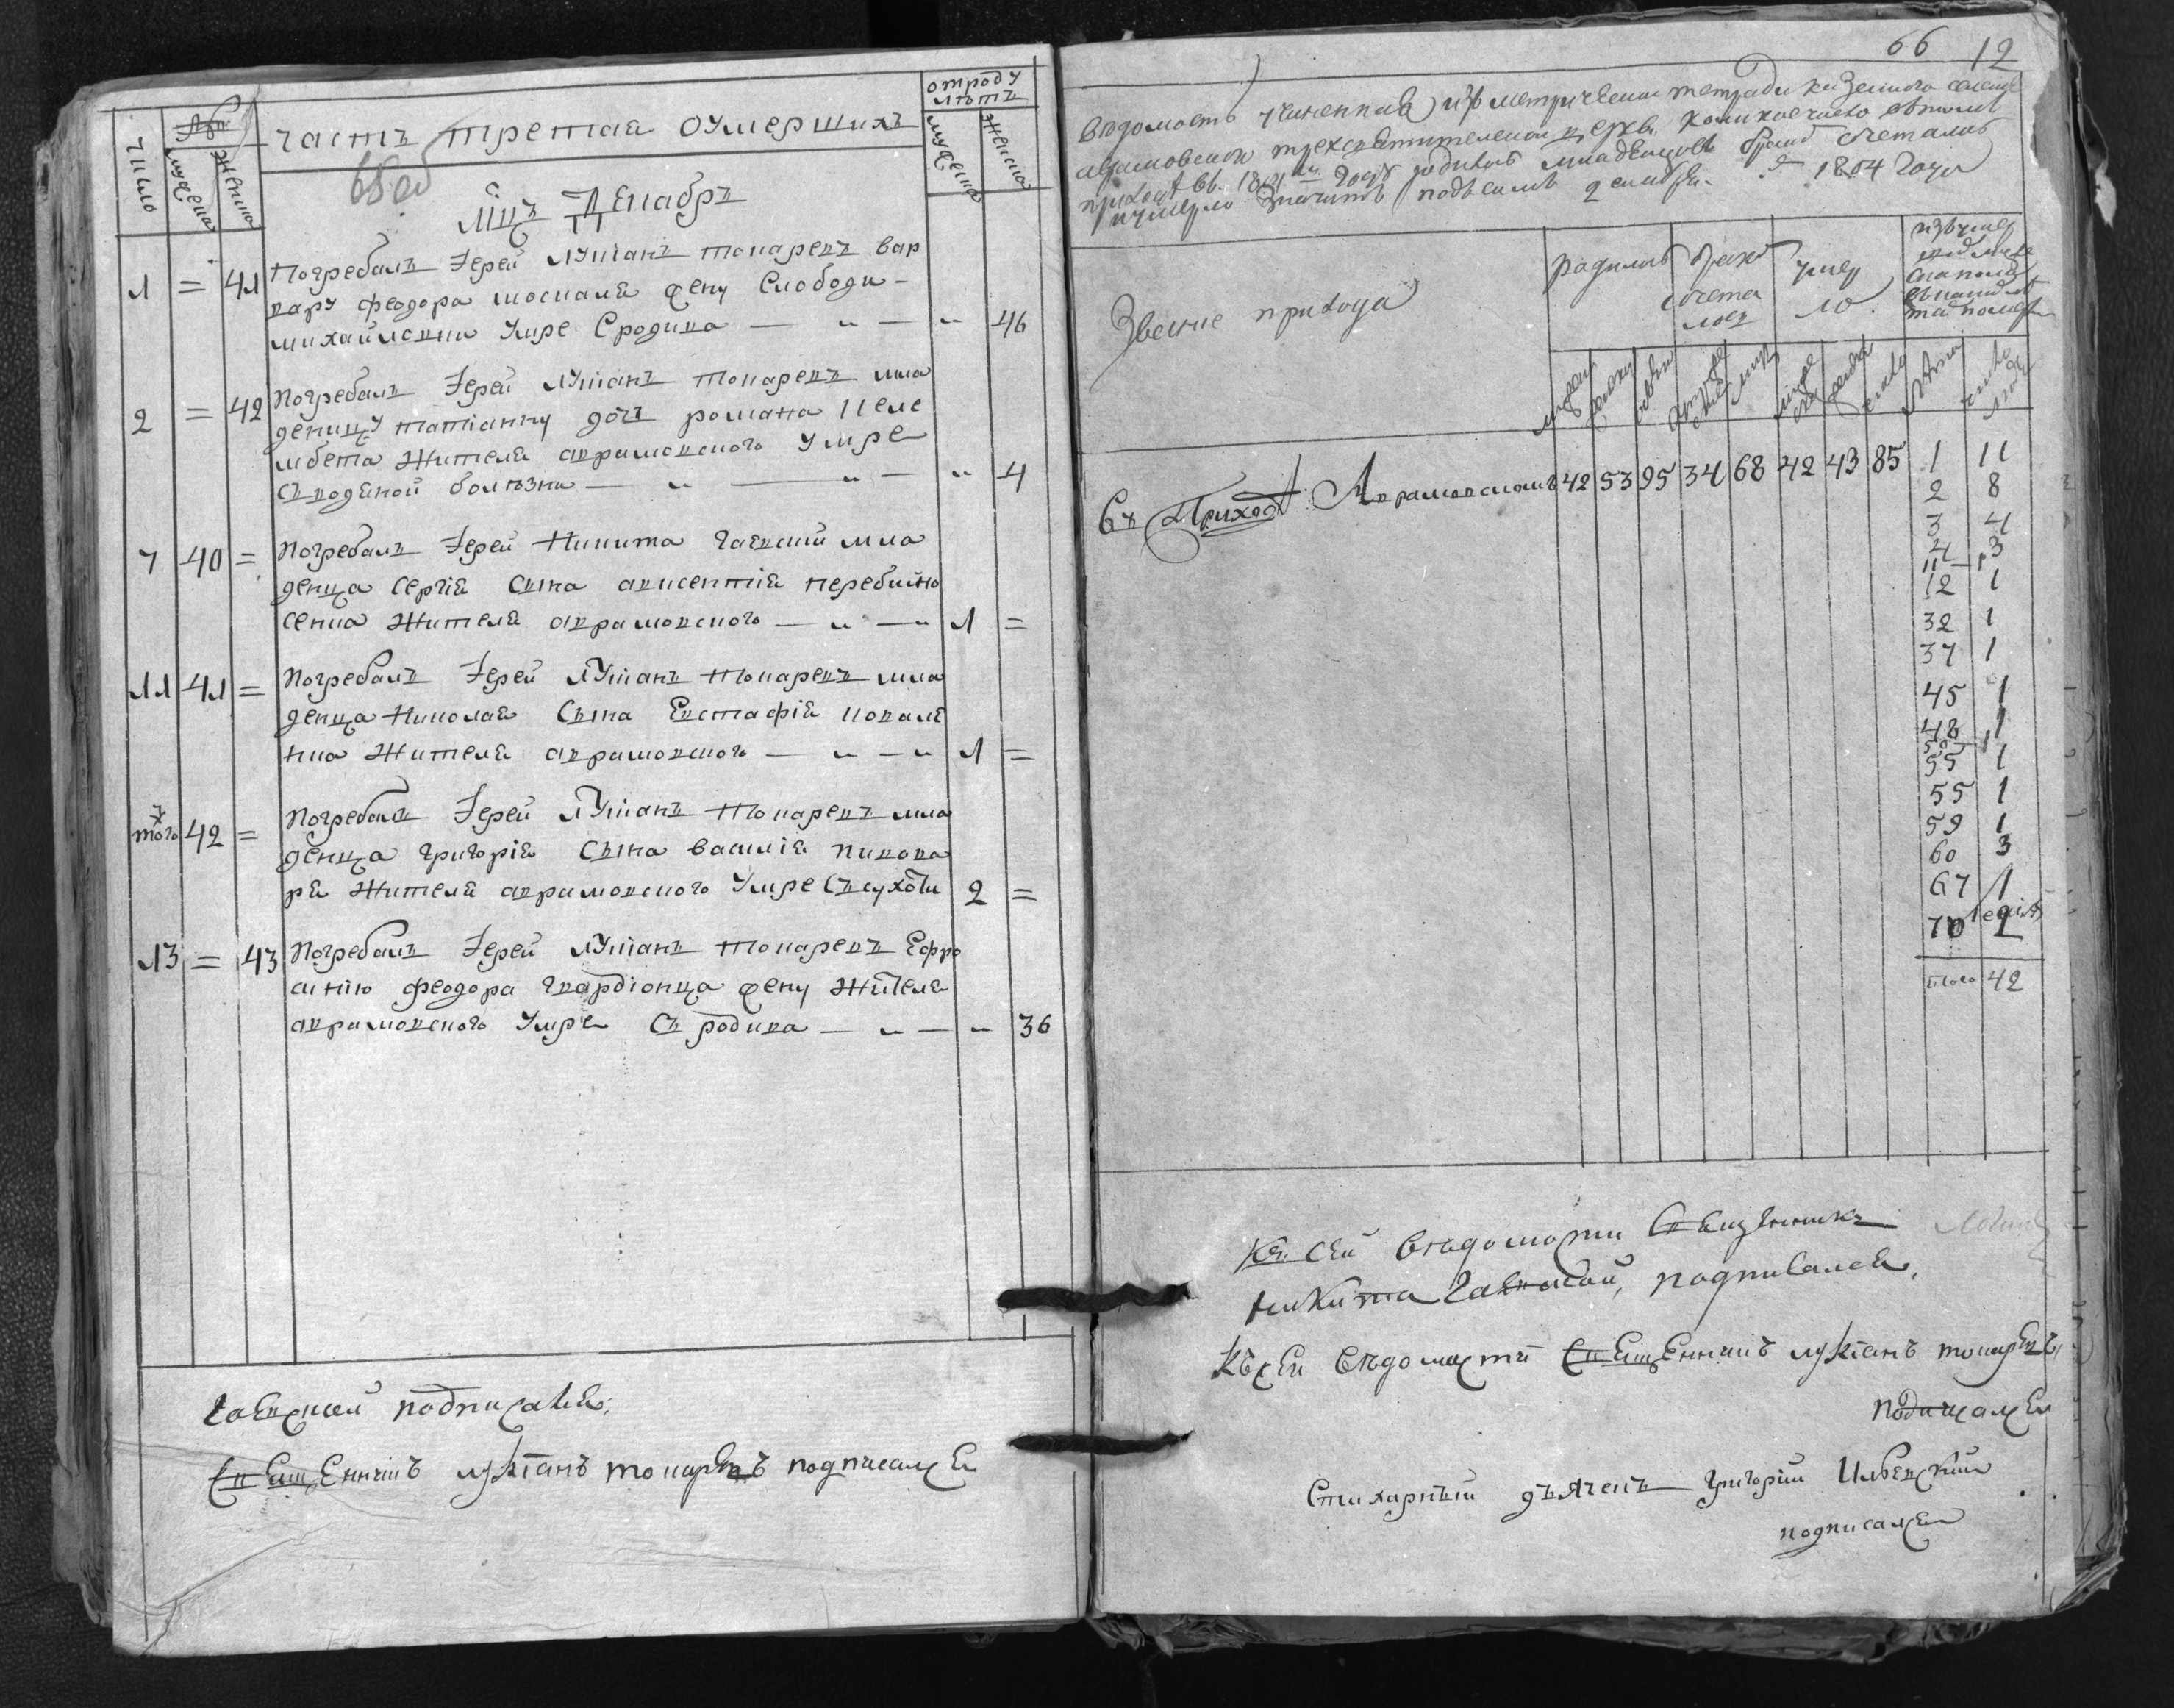 число
мужеска
женска
часть третая оумершихъ
отроду
лѣтъ
мужеска
женска
65об
Мцъ Декабрь
1 = 41 Погребалъ Іерей Лукіанъ токаревъ вар
вару феодора москаля жену Слободи
михайловки Умре Сродива — 46
2 = 42 Погребалъ Іерей Лукіанъ токаревъ мла
деницу татіанну дочь романа
жителя аврамовского Умре
Сводяной болѣзни — 4
7 40 = Погребалъ Іерей Никита Гаевский мла
денца сергія сына авксентія перебийно
сенка жителя аврамовского — 1 =
11 41 = Погребалъ Іерей Лукіанъ токаревъ мла
денца Николая Сына Евстафія ковале
нка жителя аврамовского — 1 =
того 42 = Погребалъ Іерей Лукіанъ токаревъ мла
денца григорія Сына василія пивова
ря жителя аврамовского Умре Съсухоти 2 =
13 = 43 Погребалъ Іерей Лукіанъ токаревъ Ефро
синію феодора гвардіонца жену жителя
аврамовского Умре Съ родива — 36
Гаевский подписался
Священникъ лукіанъ токаревъ подписался
66 12
Вѣдомость учиненная изъ метрической тетради казенного селенія
аврамовской трехсвятительской церкви коликое число вътомъ
приходѣ въ 1804м году родилось младенцовъ бракомъ сочеталось
иумерло значитъ подъ симъ декабря 1804 года
Звание прихода
родилось
брако
сочета
лось
умер
ло
Въ Приходѣ Аврамовскомъ 42 53 95 34 68 42 43 85 1 11
2 8
3 4
4 3
11 1
12 1
32 1
37 1
45 1
48 1
50 1
55 1
55 1
59 1
60 3
67 1
70 2
итого 42
Къ сей вѣдомости Священникъ
никита Гаевский, подписался,
Къ сей вѣдомости Священникъ лукіанъ токаревъ
подписался
Стихарный дьячекъ Григорий Ильвский
подписался